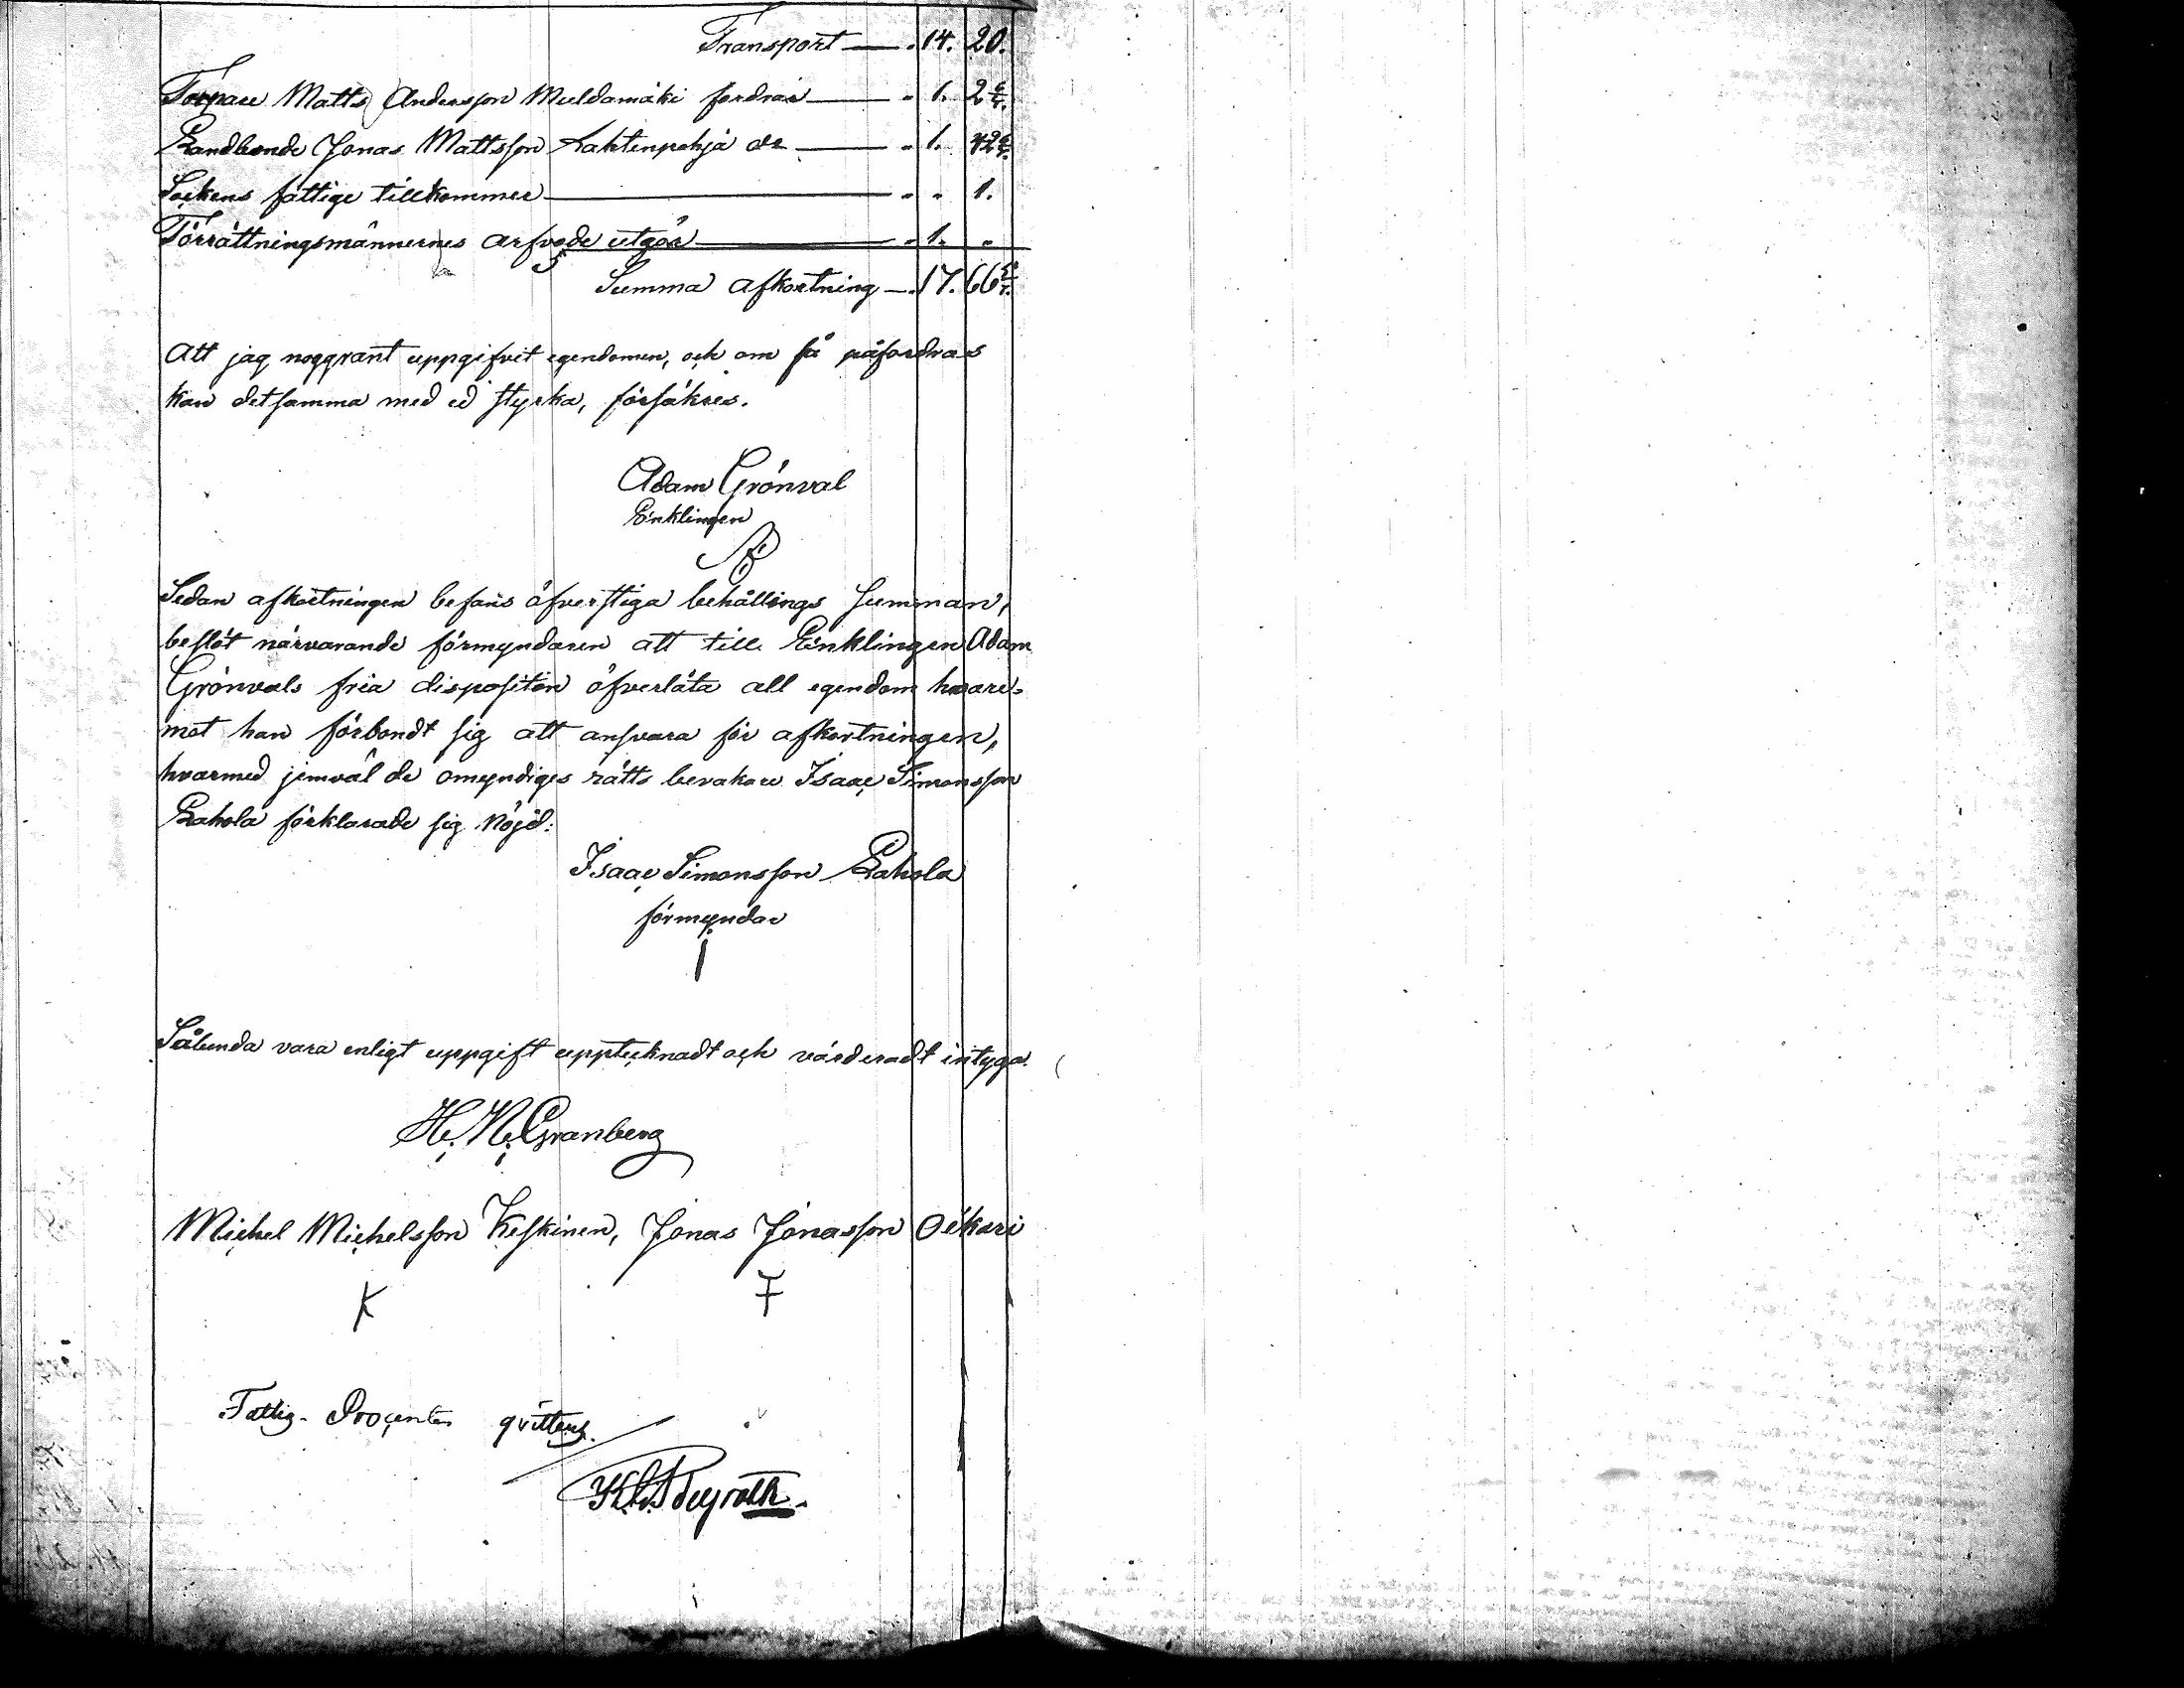 Transport — „ 14. 20.
Torpare Matts Andersson Muldamäki fordrar — „ 1. 2 6/7.
Landbonde Jonas Mattsson Lahtenpohja do — „ 1. 42 6/7.
Sockens fattige tillkommer — „ „ 1.
Förrättningsmännernes arfvode utgör — „ 1. „
Summa afkortning — „ 17. 66 5/7.
Att jag noggrant uppgifvit egendomen, och om så påfordras
kan detsamma med ed styrka, försäkres.
Adam Grönval
Enklingen
Sedan afkortningen befans öfverstiga behållings summan,
beslöt närvarande förmyndaren att till Enklingen Adam
Grönvals fria disposition öfverlåta all egendom hvare-
mot han förbandt sig att ansvara för afkortningen,
hvarmed jemväl de omyndiges rätts bevakare Isaac Simonsson
Rahola förklarade sig nöjd:
Isaac Simonsson Rahola
förmyndar
Sålunda vara enligt uppgift upptecknadt och värderadt intyga.
H. N. Granberg
Michel Michelsson Keskinen, Jonas Jonasson Oikari
K
Fattig-Procenten qvitteras.